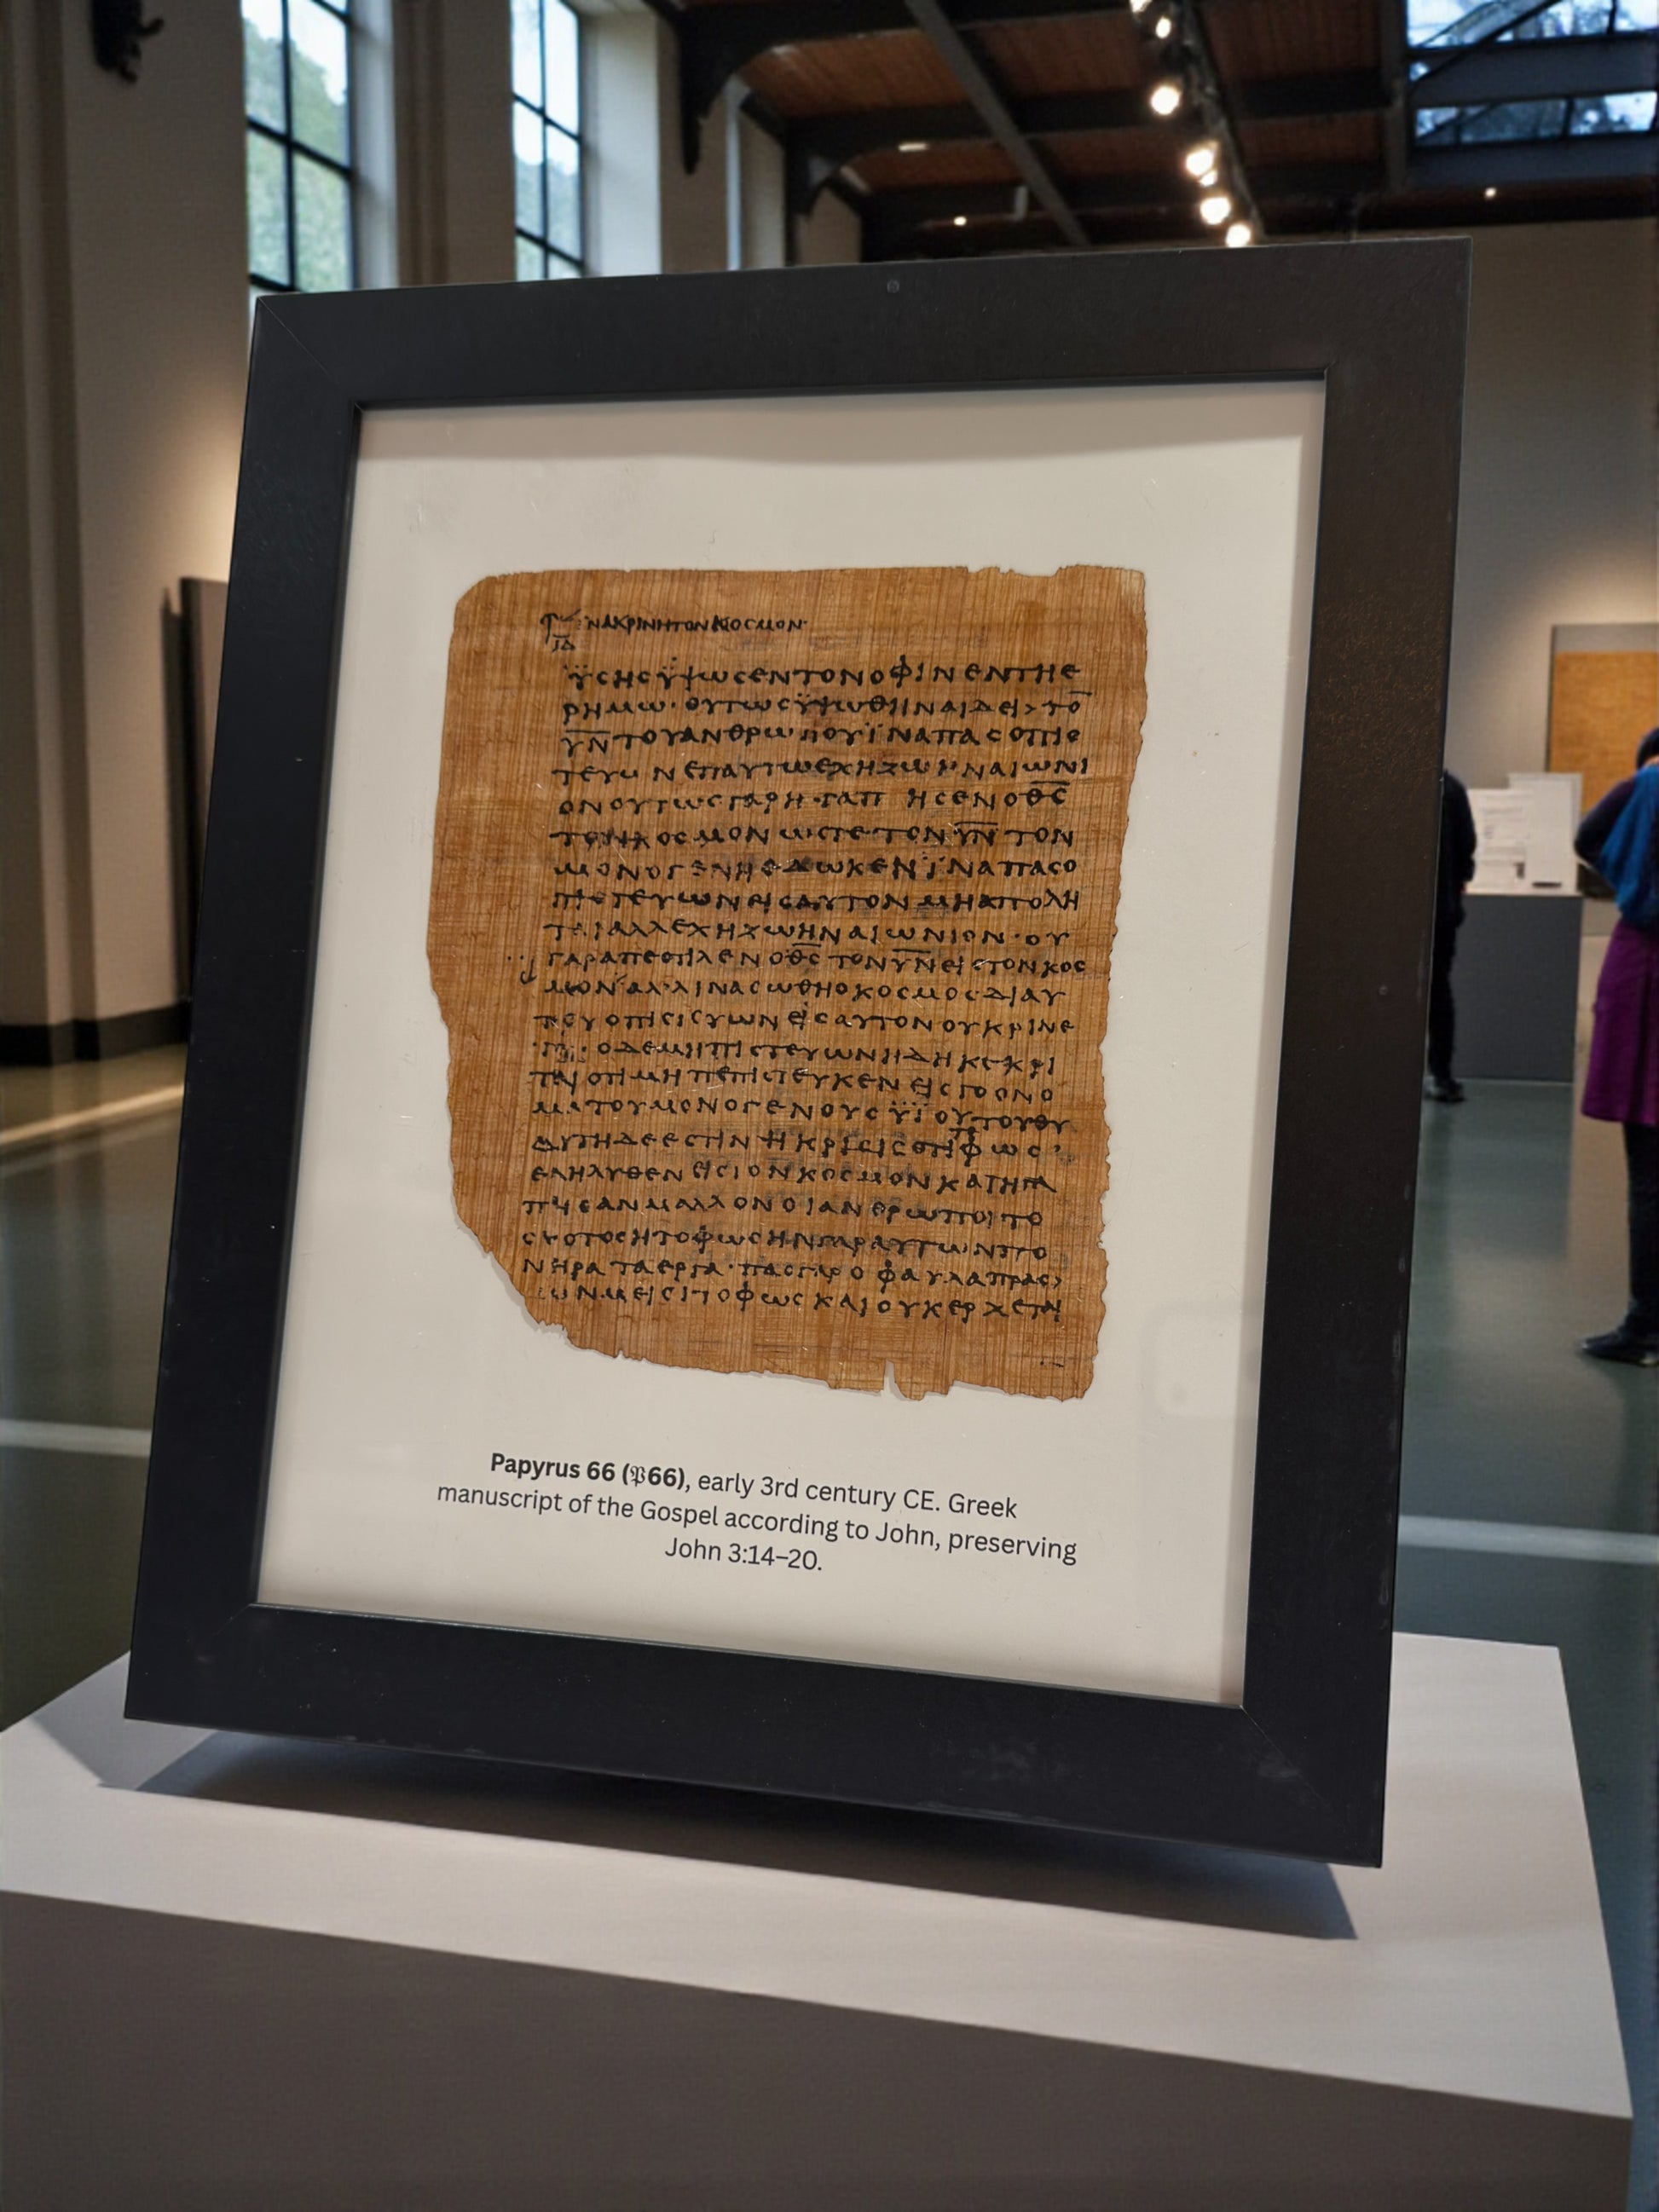 ΝΑΚΡΙΝΗΤΟΝΚΟCΜΟΝ·
Ι̅Δ̅
ΫCΗCΫΨωCΕΝΤΟΝΟΦΙΝΕΝΤΗΕ
ΡΗΜω·ΟΥΤωCΫΨωΘΗΝΑΙΔΕΙ>ΤΟ̅
Υ̅Ν̅ΤΟΥΑΝΘΡωΠΟΥΪΝΑΠΑCΟΠΙC
ΤΕΥωΝΕΠΑΥΤωΕΧΗΖωΗΝΑΙωΝΙ
ΟΝΟΥΤωCΓΑΡΗΓΑΠΗCΕΝΟΘ̅C̅
ΤΟΝΚΟCΜΟΝωCΤΕΤΟΝΥ̅Ν̅ΤΟΝ
ΜΟΝΟΓΕΝΗΕΔωΚΕΝΪΝΑΠΑCΟ
ΠΙCΤΕΥωΝΕΙCΑΥΤΟΝΜΗΑΠΟΛΗ
ΤΑΙΑΛΛΕΧΗΖωΗΝΑΙωΝΙΟΝ·ΟΥ
ΓΑΡΑΠΕCΤΙΛΕΝΟΘ̅C̅ΤΟΝΥ̅Ν̅ΕΙCΤΟΝΚΟC
ΜΟΝΑΛΛΙΝΑCωΘΗΟΚΟCΜΟCΔΙΑΥ
ΤΟΥΟΠΙCΤΕΥωΝΕΙCΑΥΤΟΝΟΥΚΡΙΝΕ
ΤΑΙ·ΟΔΕΜΗΠΙCΤΕΥωΝΗΔΗΚΕΚΡΙ
ΤΑΙΟΤΙΜΗΠΕΠΙCΤΕΥΚΕΝΕΙCΤΟΟΝΟ
ΜΑΤΟΥΜΟΝΟΓΕΝΟΥCΫΪΟΥΤΟΥΘΥ
ΑΥΤΗΔΕΕCΤΙΝΗΚΡΙCΙCΟΤΙΤΟΦωC
ΕΛΗΛΥΘΕΝΕΙCΤΟΝΚΟCΜΟΝΚΑΙΗΓΑ
ΠΗCΑΝΜΑΛΛΟΝΟΙΑΝΘΡωΠΟΙΤΟ
CΚΟΤΟCΗΤΟΦωCΗΝΓΑΡΑΥΤωΝΠΟ
ΝΗΡΑΤΑΕΡΓΑ·ΠΑCΓΑΡΟΦΑΥΛΑΠΡΑC>
CωΝΜΕΙCΙΤΟΦωCΚΑΙΟΥΚΕΡΧΕΤΑΙ
Papyrus 66 (𝔓66), early 3rd century CE. Greek
manuscript of the Gospel according to John, preserving
John 3:14–20.